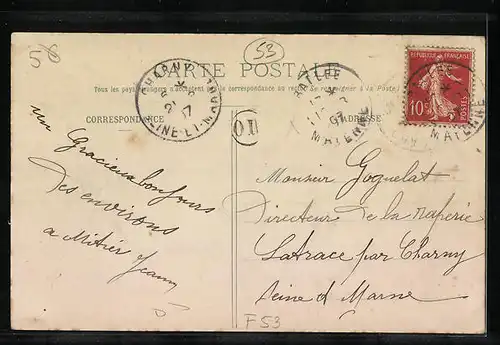 58
53
CARTE POSTALE
Tous les pays étrangers n'acceptent pas la correspondance au recto. Se renseigner à la Poste
CORRESPONDANCE
ADRESSE
CHARNY
21
SEINE-ET-MARNE
OI
07
MAYENNE
RÉPUBLIQUE FRANÇAISE
10c
POSTES
MAYENNE
un Gracieux bonjours
des environs
a Mitier Jean
Monsieur Goguelat
Directeur de la raperie
Latrace par Charny
Seine et Marne
F53